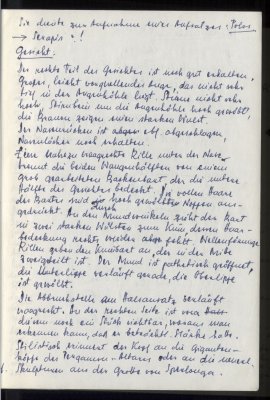 Sie diente zur Aufnahme eines Aufsatzes: Polos
→ Serapis !
Gesicht:
Der rechte Teil des Gesichtes ist noch gut erhalten.
Großes, leicht vorquellendes Auge, das nicht sehr
tief in der Augenhöhle liegt. Stirne nicht sehr
hoch, Stirnbein um die Augenhöhle hoch gewölbt,
die Brauen zeigen einen starken Wulst.
Der Nasenrücken ist abgeschlagen,
Nasenlöcher noch erhalten.
Eine waagrechte Rille unter der Nase
trennt die beiden Wangenhälften von einem
grob gearbeiteten Backenbart, der die untere
Hälfte des Gesichtes bedeckt. Die vollen Haare
des Bartes sind durch gewölbte Noppen aus-
gedrückt. In den Mundwinkeln zieht der Bart
in zwei starken Wülsten zum Kinn, dessen Bar-
bedeckung rechts wieder fehlt. Wellenförmige
Rillen geben den Kinnbart an, der in der Mitte
zweigeteilt ist. Der Mund ist pathetisch geöffnet,
die Unterlippe verläuft gerade, die Oberlippe
ist gewölbt.
Die Abbruchstelle am Halsansatz verläuft
waagrecht. In der rechten Seite ist vom
noch ein Stück sichtbar, woraus man
erkennen kann, daß es beträchtl. Stärke hatte.
Stilistisch erinnert der Kopf an die Giganten-
köpfe des Pergamon-Altares oder an die
Skulpturen aus der Grotte von Sperlonga.